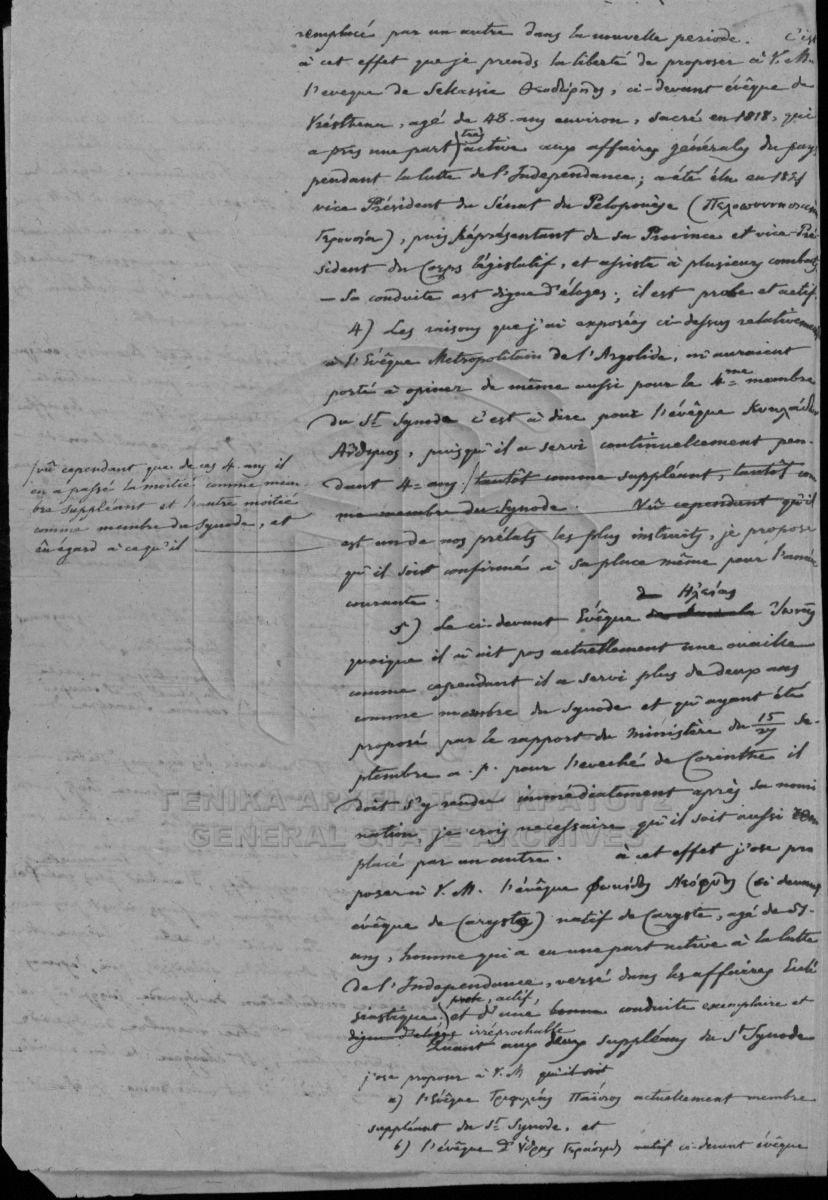 remplacé par un autre dans la nouvelle periode. C'est
à cet effet que je prends la liberté de proposer à V. M.
l'eveque de Sellassie Θεοδώρητος, ci-devant évêque de
Vrésthena, agé de 48 ans environ, sacré en 1818, qui
a pris une part très active aux affaires générales du pays
pendant la lutte de l'Independance; a été élu en 1821
vice Président du Sénat du Peloponèse (Πελοποννησιακή
Γερουσία), puis Réprésentant de sa Province et vice-Pré-
sident du Corps législatif, et assisté à plusieurs combats
— Sa conduite est digne d'éloges; il est probe et actif.
4) Les raisons que j'ai exposées ci-dessus relativement
à l'Evêque Metropolitain de l'Argolide, m'auraient
porté à opiner de même aussi pour le 4me membre
du St. Synode c'est à dire pour l'évêque Κυκλάδων
Άνθιμος, puisqu'il a servi continuellement pen-
dant 4 ans / tantôt comme suppléant, tantôt com
me membre du Synode. Vû cependant qu'il
/ vû cependant que de ces 4 ans il
en a passé la moitié comme mem-
bre suppléant et l'autre moitié
comme membre du Synode, et
eu égard à ce qu'il
est un de nos prélats les plus instruits, je propose
qu'il soit confirmé à sa place même pour l'année
courante.
5) Le ci-devant Evêque d' Ηλείας Ἰωνᾶς
quoique il n'ait pas actuellement une ouaille
comme cependant il a servi plus de deux ans
comme membre du Synode et qu'ayant été
proposé par le rapport du Ministère du 15/27 Se-
ptembre a. p. pour l'eveché de Corinthe il
doit s'y rendre immédiatement après sa nomi
nation, je crois necessaire qu'il soit aussi rem
placé par un autre. à cet effet j'ose pro
poser à V. M. l'évêque Φωκίδος Νεόφυτος (ci devant
évêque de Caryste) natif de Caryste, agé de 51
ans, homme qui a eu une part active à la lutte
de l'Independance, versé dans les affaires Ecclé
siastiques, probe, actif, et d'une bonne conduite exemplaire et
digne d'eloges irréprochable
Quant aux deux suppléans du St Synode
j'ose proposer à V. M qu'il soit
a) l'Evêque Τριφυλίας actuellement membre
suppléant du St. Synode, et
b) l'évêque d'Ύδρας Γεράσιμος natif ci-devant évêque
ΓΕΝΙΚΑ ΑΡΧΕΙΑ ΤΟΥ ΚΡΑΤΟΥΣ
GENERAL STATE ARCHIVES